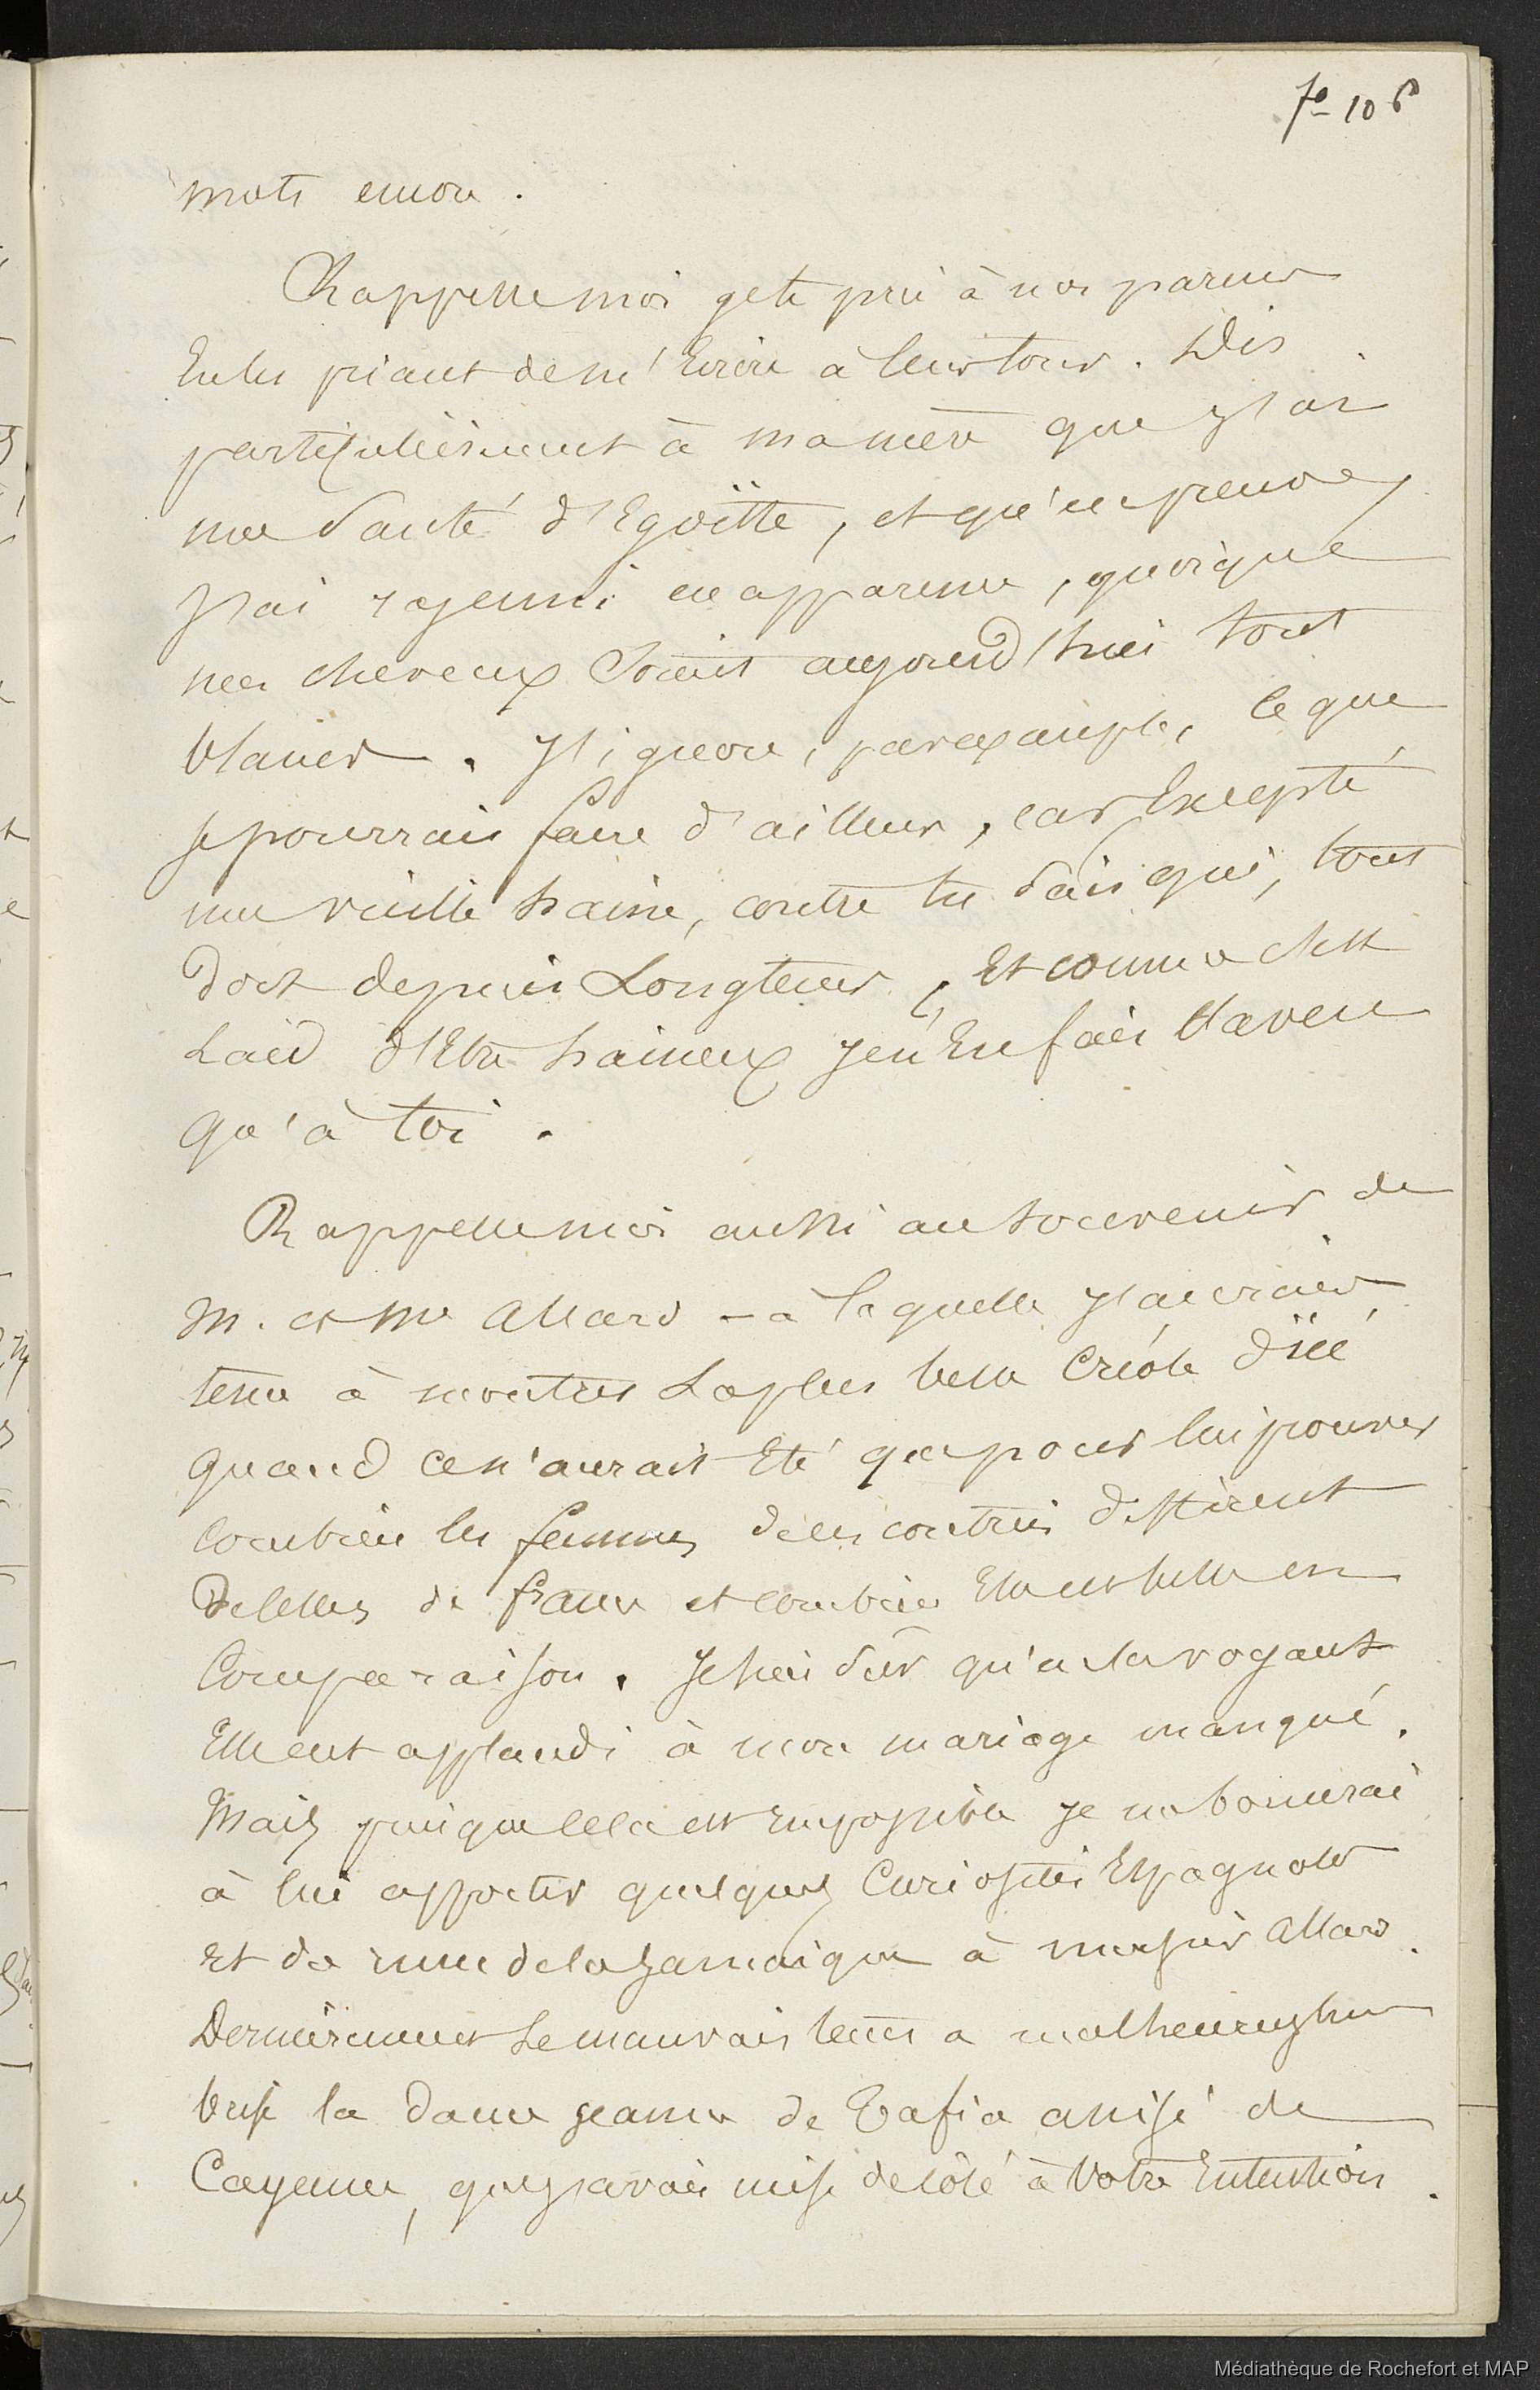 fo 106
mots encore.
Rappelle moi je te prie à nos parens
En les priant de m'Ecrire à leur tour. Dis
particulièrement à ma mère que j'ai
ma santé d'Egoïste, et qu'en preuve,
j'ai rajeuni en apparence, quoique
mes cheveux Soient aujourd'hui tout
blancs. J'ignore, par exemple, ce que
je pourrais faire d'ailleurs, car Excepté
ma vieille haine, contre tu sais qui, tout
dort depuis Longtems, Et comme c'est
Laid d'Etre haineux je n'En fais l'aveu
qu'à toi.
Rappelle moi aussi au souvenir de
M. et Me Allard - à laquelle j'aurais
tenu à montrer La plus belle Créole d'ici
quand ce n'aurait Eté que pour lui prouver
Combien les femmes de ces contrées diffèrent
De celles de france et combien Elle est belle en
Comparaison. Je suis sûr qu'en la voyant
Elle eut applaudi à mon mariage manqué.
Mais puisque cela est impossible je me bornerai
à lui apporter quelques Curiosités Espagnoles
Et du rum de la Jamaïque à mousieur Allard.
Dernièrement Le mauvais tems a malheureusement
brisé la dame jeanne de Tafia anisé de
Cayenne, que j'avais mise de côté à Votre Intention.
Médiathèque de Rochefort et MAP